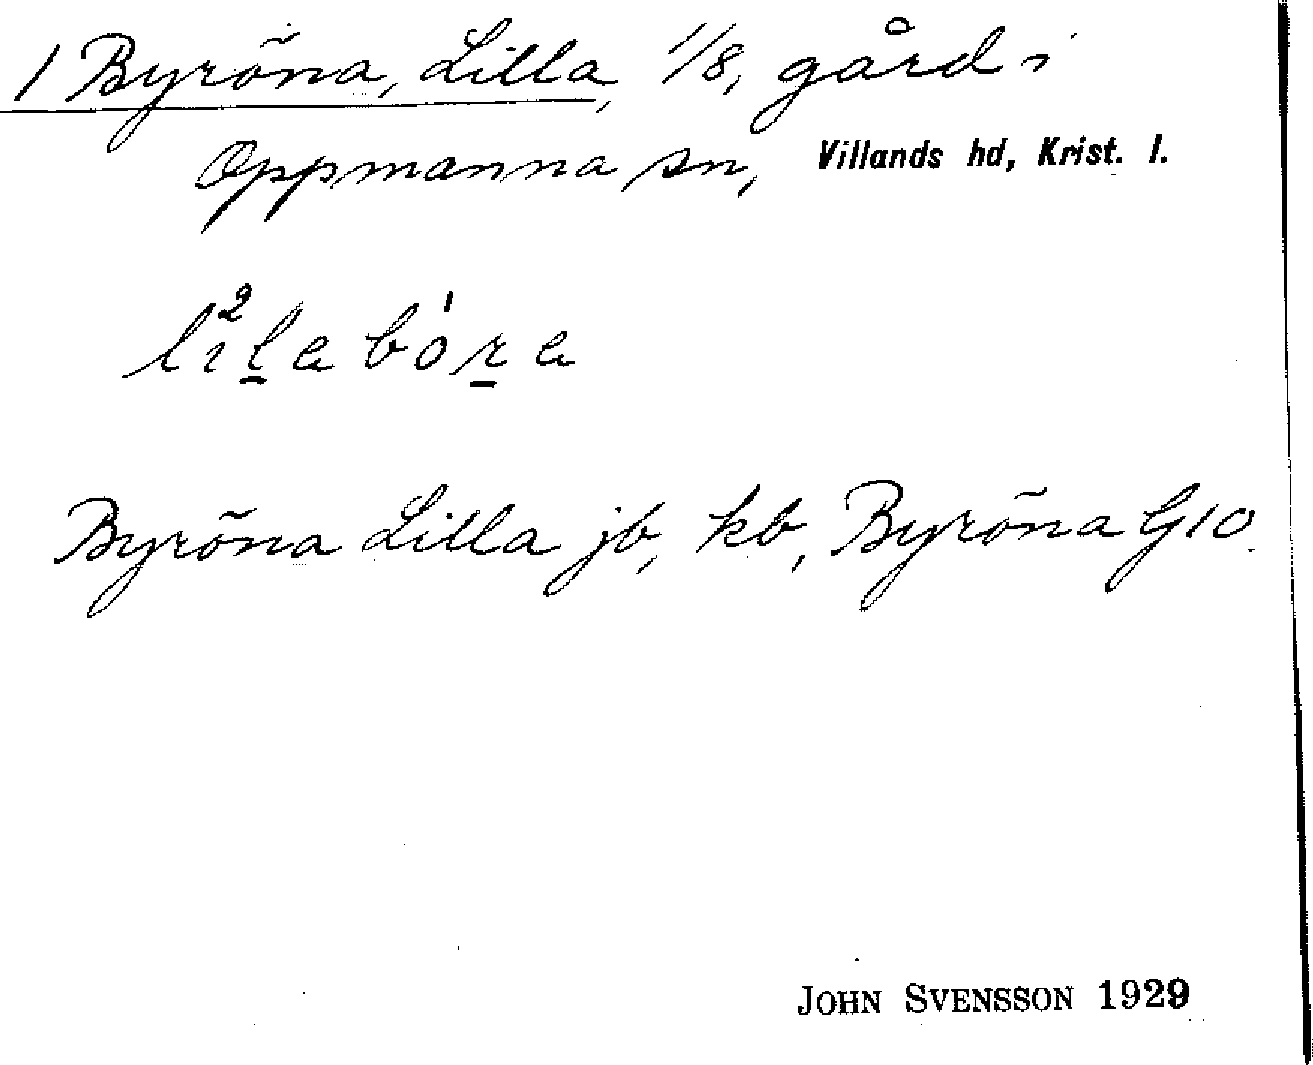 1 Byröna, Lilla, 1/8, gård i
Oppmanna sn, Villands hd, Krist. l.
Byröna Lilla jb, kb, Byröna G10.
JOHN SVENSSON 1929